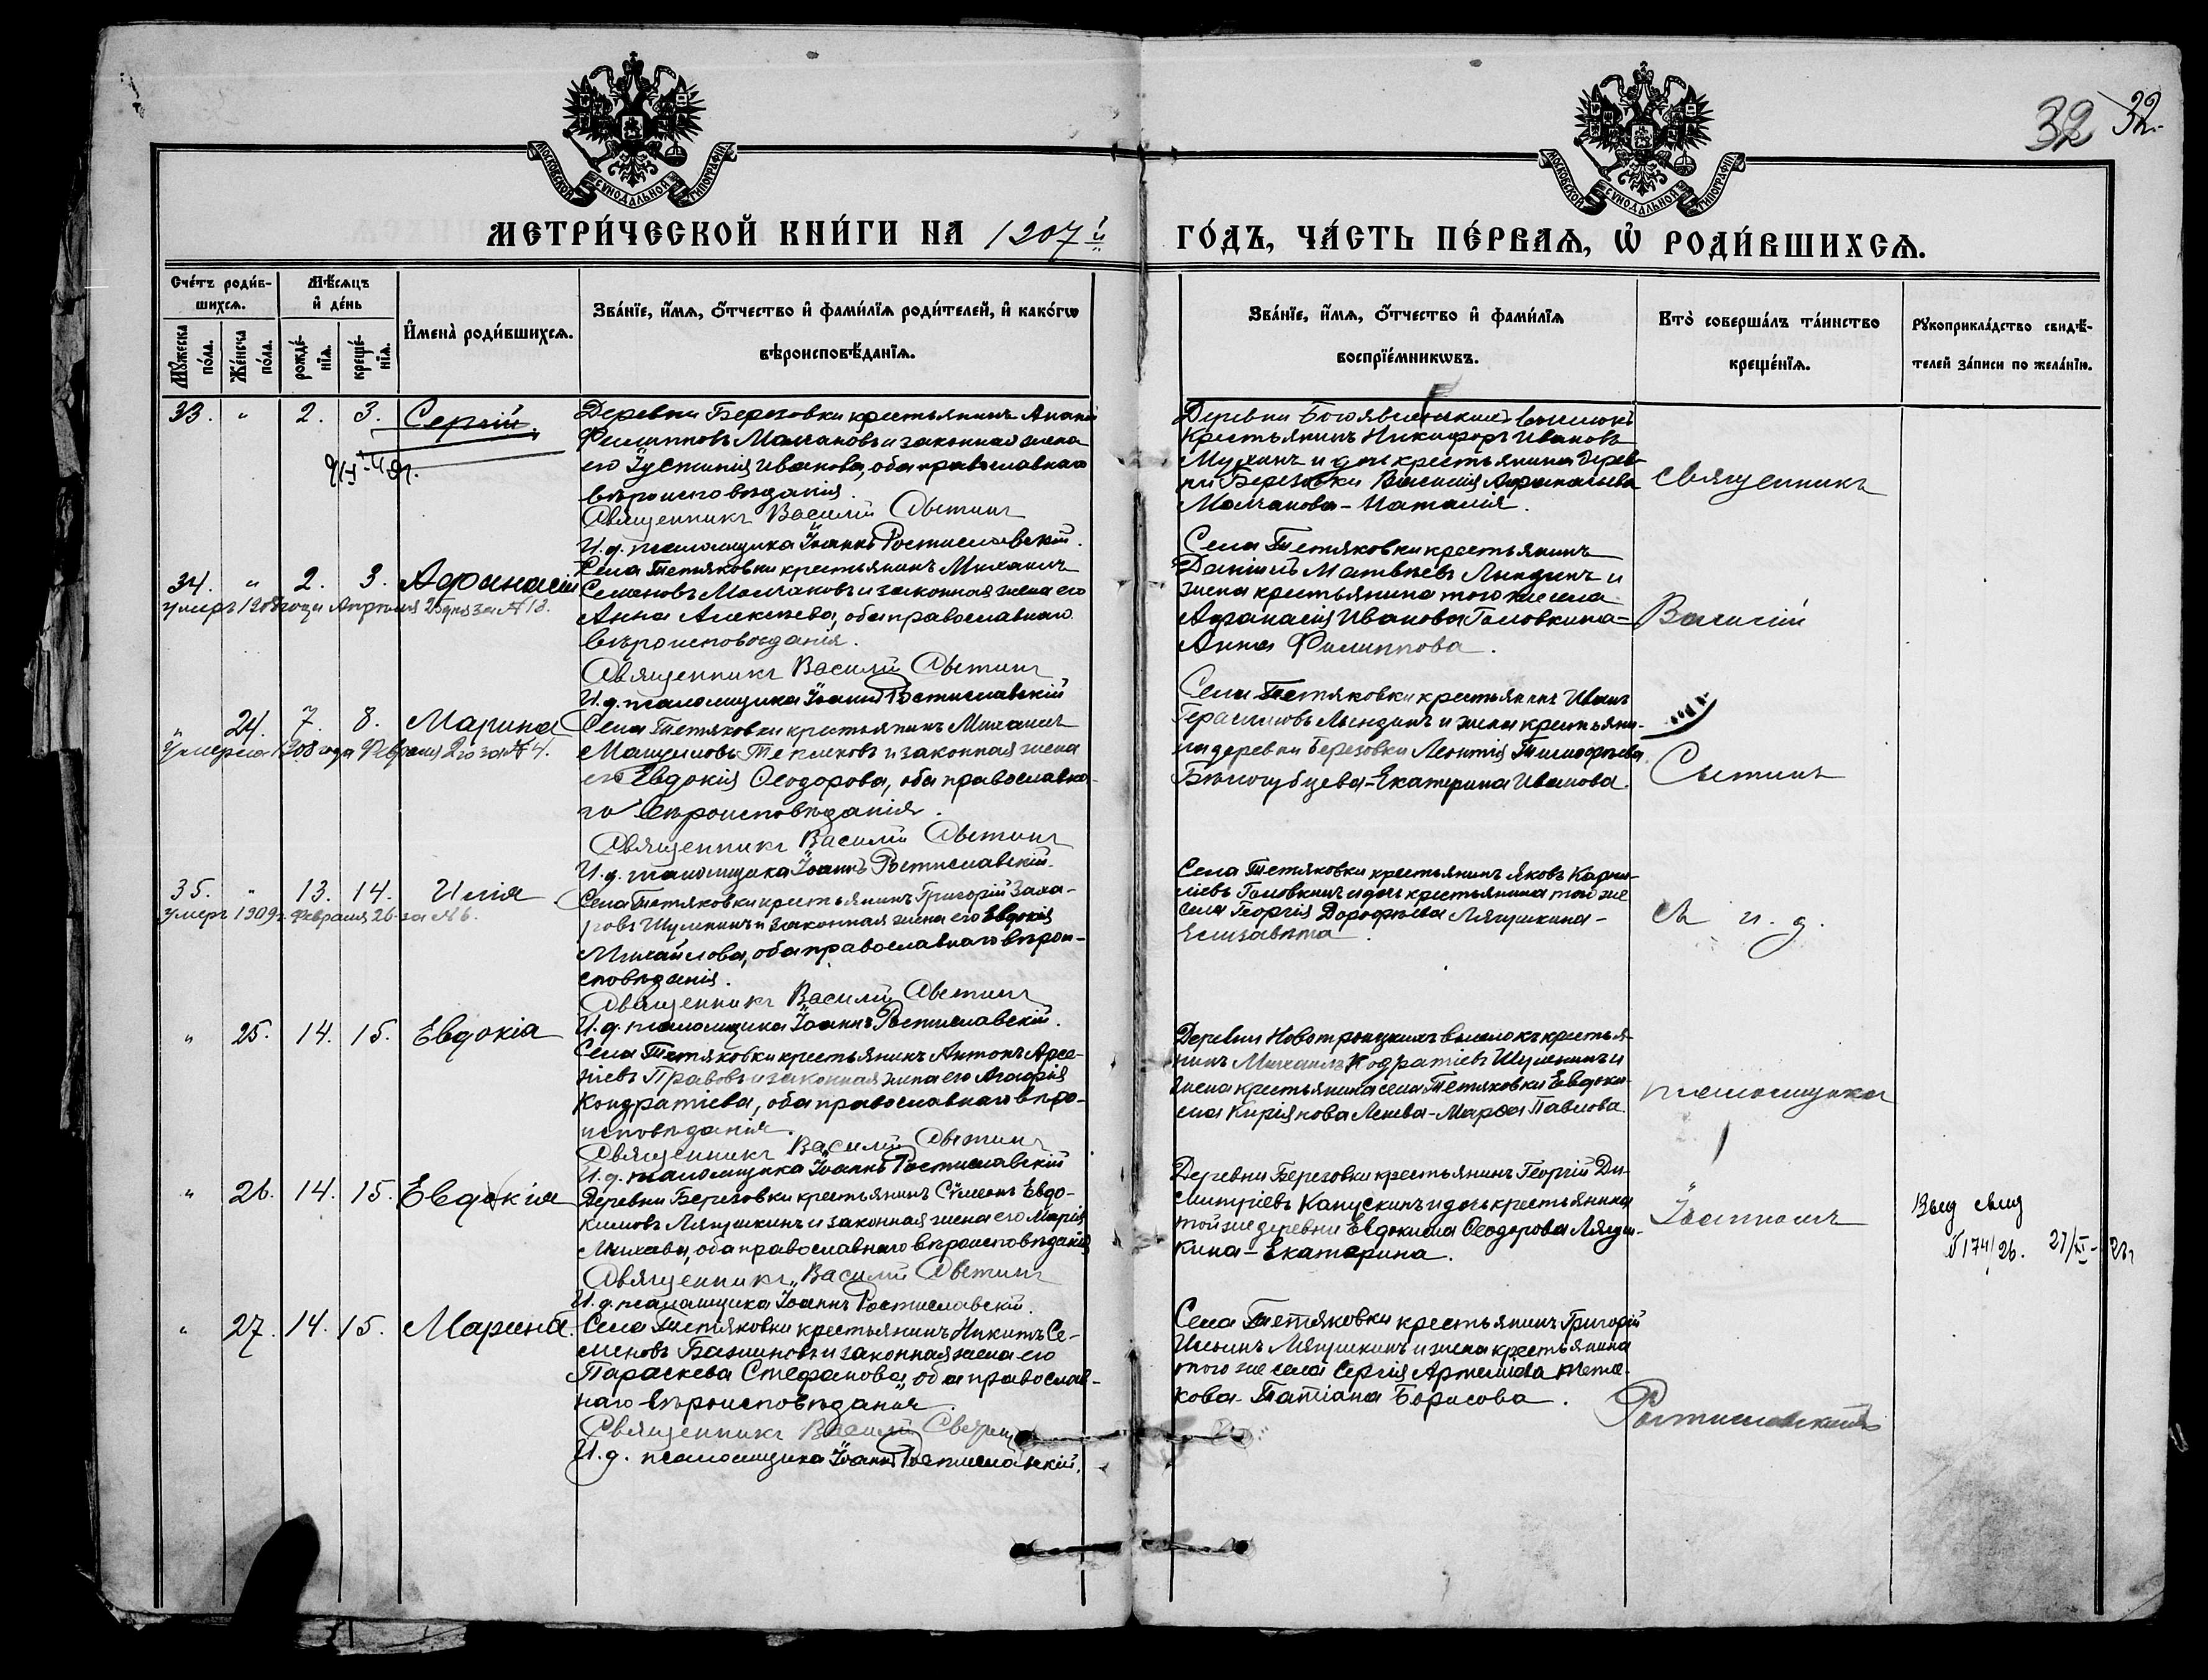 32 32.
МОСКОВСКОЙ СѴНОДАЛЬНОЙ ТИПОГРАФІИ
МОСКОВСКОЙ СѴНОДАЛЬНОЙ ТИПОГРАФІИ
МЕТРИ́ЧЕСКОЙ КНИ́ГИ НА 1907й
ГО́ДЪ, ЧА́СТЬ ПЕ́РВАѦ, Ѡ҆ РОДИ́ВШИХСѦ.
Сче́тъ роди́в-
шихсѧ.
Мѣ́сѧцъ
и҆ де́нь
И҆мена̀ роди́вшихсѧ.
Зва́нїе, и҆́мѧ, ѻ҆́тчество и҆ фами́лїѧ роди́телей, и҆ како́гѡ
вѣроисповѣ́данїѧ.
Мꙋ́жеска по́ла.
Же́нска по́ла.
рожде́-
нїѧ.
креще́-
нїѧ.
Зва́нїе, и҆́мѧ, ѻ҆́тчество и҆ фами́лїѧ
воспрїе́мникѡвъ.
Кто̀ соверша́лъ та́инство
креще́нїѧ.
Рꙋкоприкла́дство свидѣ́-
телей за́писи по жела́нїю.
33. " 2. 3. Сергій.
Деревни Березовки крестьянинъ Анані
Филипповъ Молчановъ и законная жена
его Іустинія Иванова, оба православнаго
вѣроисповѣданія.
Священникъ Василій Сытинъ
И. д. псаломщика Іоаннъ Ростиславскій.
Деревни Богоявленскихъ выселокъ
крестьянинъ Никифоръ Ивановъ
Мухинъ и дочь крестьянина дерев-
ни Березовки Василія Афанасьева
Молчанова - Наталія.
Священникъ
34. " 2. 3. Афанасій
умеръ 1908 года Апрѣля 25 дня за № 13.
Села Тетяковки крестьянинъ Михаилъ
Семеновъ Молчановъ и законная жена его
Анна Алексѣева, оба православнаго
вѣроисповѣданія.
Священникъ Василій Сытинъ
И. д. псаломщика Іоаннъ Ростиславскій
Села Тетяковки крестьянинъ
Даніилъ Матвѣевъ Лындинъ и
жена крестьянина того же села
Афанасія Иванова Головкина -
Анна Филиппова.
Василій
" 24. 7. 8. Марина
Умерла 1908 года Февраля 2го за № 4.
Села Тетяковки крестьянинъ Михаилъ
его Евдокія Ѳеодорова, оба православна-
го вѣроисповѣданія.
Священникъ Василій Сытинъ
И. д. псаломщика Іоаннъ Ростиславскій.
Села Тетяковки крестьянинъ Иванъ
Герасимовъ Лындинъ и жена крестьяни-
на деревни Березовки Леонтія Тимофѣева
Бѣлогубцева - Екатерина Иванова.
Сытинъ
35. " 13. 14. Илія
умеръ 1909 г. Февраля 26. за № 6.
Села Тетяковки крестьянинъ Григорій Заха-
ровъ Шуменинъ и законная жена его Евдокія
Михайлова, оба православнаго вѣрои-
сповѣданія.
Священникъ Василій Сытинъ
И. д. псаломщика Іоаннъ Ростиславскій.
Села Тетяковки крестьянинъ Яковъ Карпи-
ліевъ Головкинъ и дочь крестьянина того же
села Георгія Дорофѣева Лягушкина -
Елизавета.
и. д.
" 25. 14. 15. Евдокія
Села Тетяковки крестьянинъ Антонъ Арсе-
ніевъ Правовъ и законная жена его Агафія
Кондратіева, оба православнаго вѣро-
исповѣданія.
Священникъ Василій Сытинъ
И. д. псаломщика Іоаннъ Ростиславскій
Деревни Новотроицкихъ выселокъ крестья-
нинъ Михаилъ Кодратіевъ Шуменинъ и
жена крестьянина села Тетяковки Евдоки-
ма Кирьянова - Марѳа Павлова.
псаломщика
" 26. 14. 15. Евдокія
Деревни Березовки крестьянинъ Сѷмеонъ Евдо-
кимовъ Лягушкинъ и законная жена его Марія
оба православнаго вѣроисповѣданія
Священникъ Василій Сытинъ
И. д. псаломщика Іоаннъ Ростиславскій.
Деревни Березовки крестьянинъ Георгій Ди-
митріевъ Капускинъ и дочь крестьянина
той же деревни Евдокима Ѳеодорова Лягуш-
кина - Екатерина.
Іоанномъ
174/26. 27/XI - 26 г
" 27. 14. 15. Марина.
Села Тетяковки крестьянинъ Никита Се-
меновъ Бажиновъ и законная жена его
Параскева Стефанова, оба православ-
наго вѣроисповѣданія.
Священникъ Василій
И. д. псаломщика Іоаннъ Ростиславскій.
Села Тетяковки крестьянинъ Григорій
Ильинъ Лягушкинъ и жена крестьянина
того же села Сергія Артемида Тетя-
кова - Татіана Борисова.
Ростиславскимъ